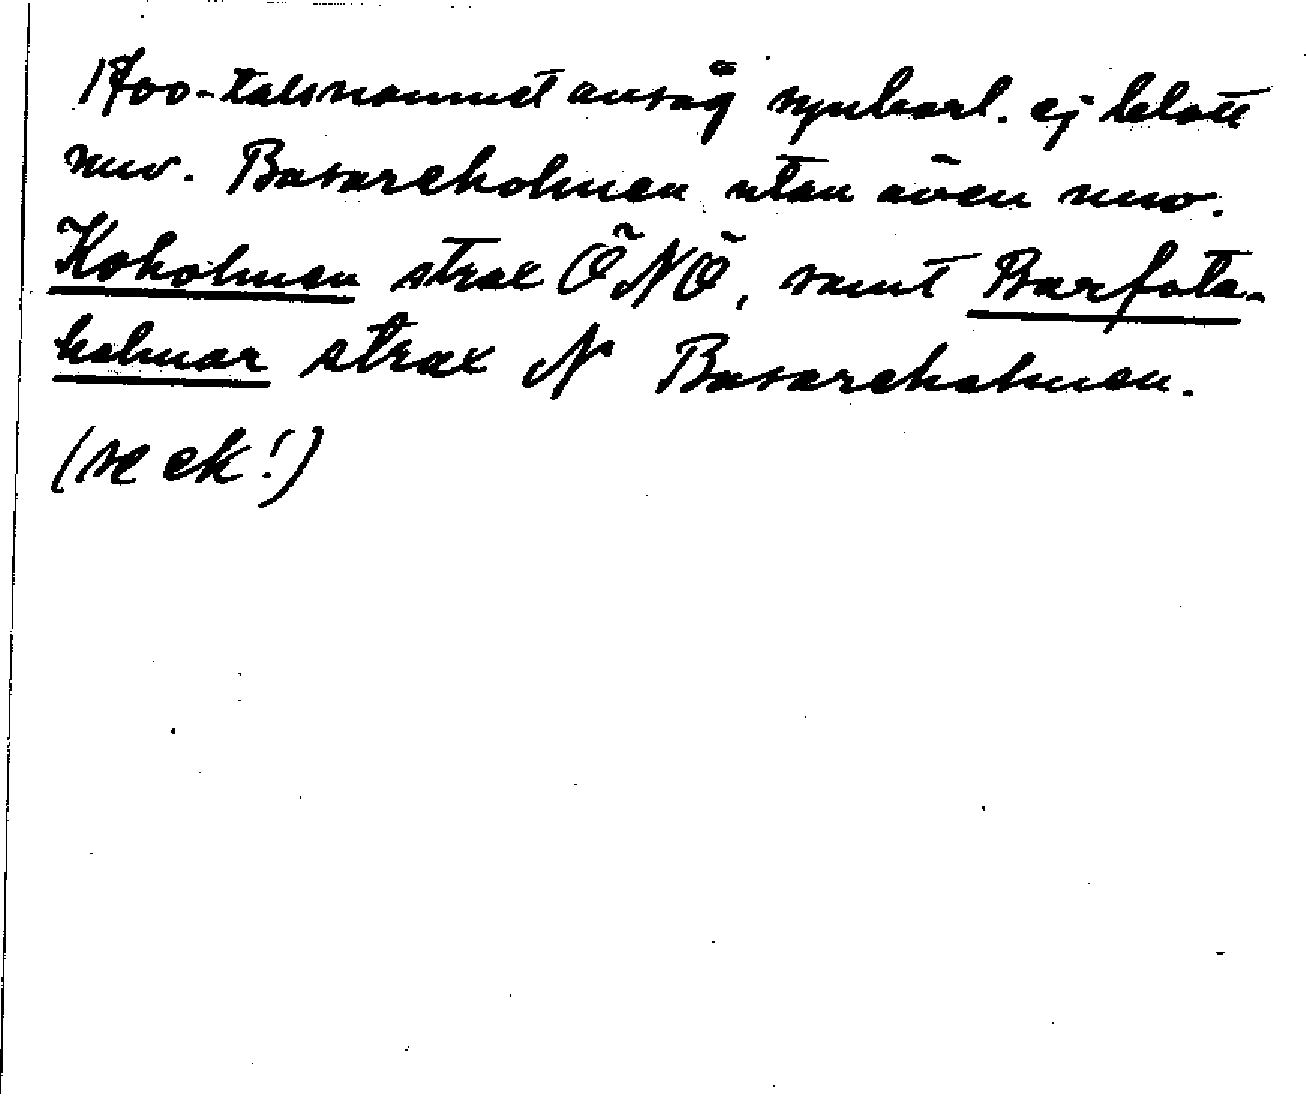 1700-talsnamnet avsåg synbarl. ej blott
nuv. Basareholmen utan även nuv.
Koholmen strax ÖNÖ, samt Barfota-
holmar strax N Basareholmen.
(se ek!)